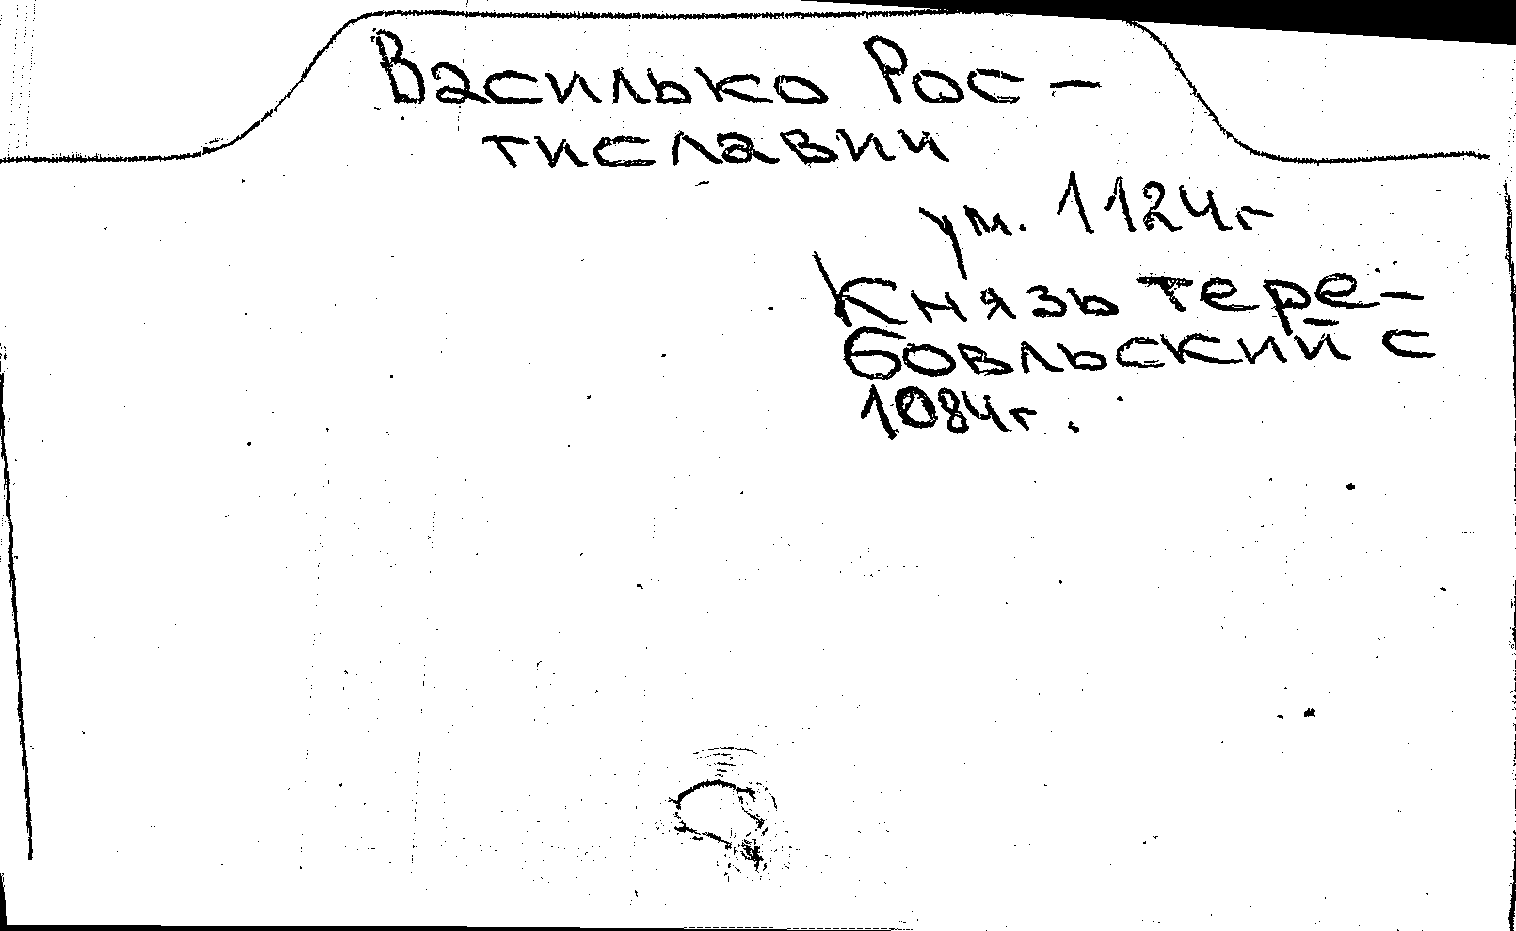 Василько Рос-
тиславич
ум. 1124г
Князь тере-
бовльский с
1084г.